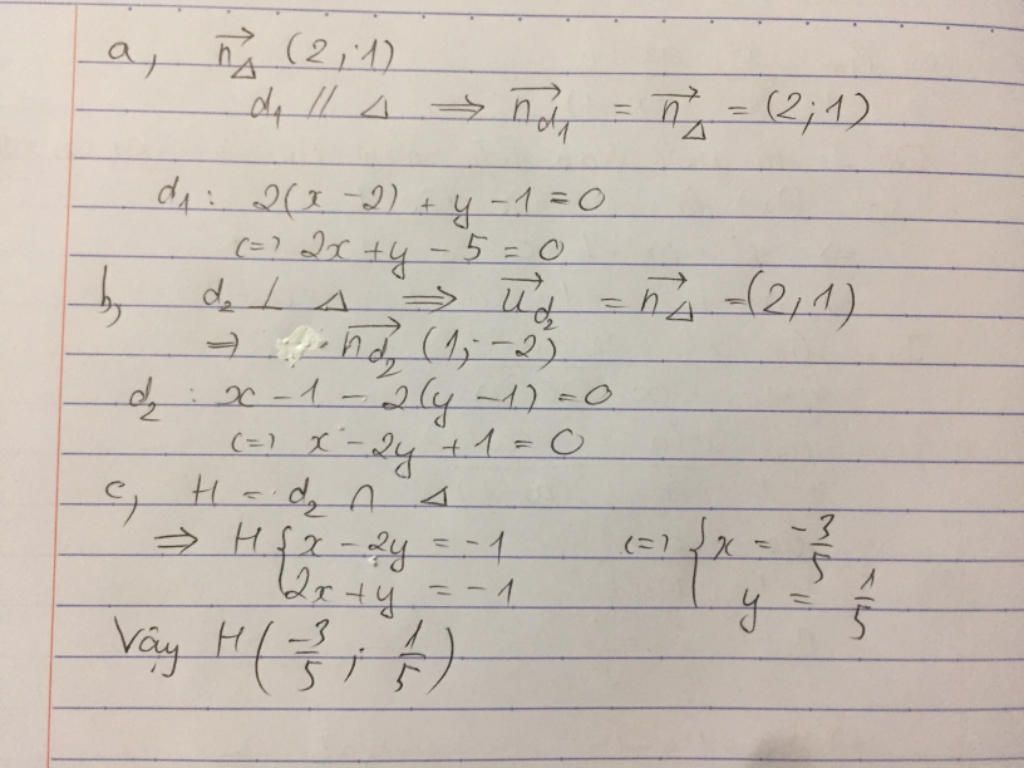 a, n⃗Δ (2; 1)
d₁ // Δ ⟹ n⃗d₁ = n⃗Δ = (2; 1)
d₁ : 2(x - 2) + y - 1 = 0
(=) 2x + y - 5 = 0
b, d₂ ⊥ Δ ⟹ u⃗d₂ = n⃗Δ = (2, 1)
⇒ n⃗d₂ (1; -2)
d₂ : x - 1 - 2(y - 1) = 0
(=) x - 2y + 1 = 0
c, H = d₂ ∩ Δ
⇒ H { x - 2y = -1 (=) { x = -3/5
2x + y = -1 y = 1/5
Vậy H ( -3/5 ; 1/5 )